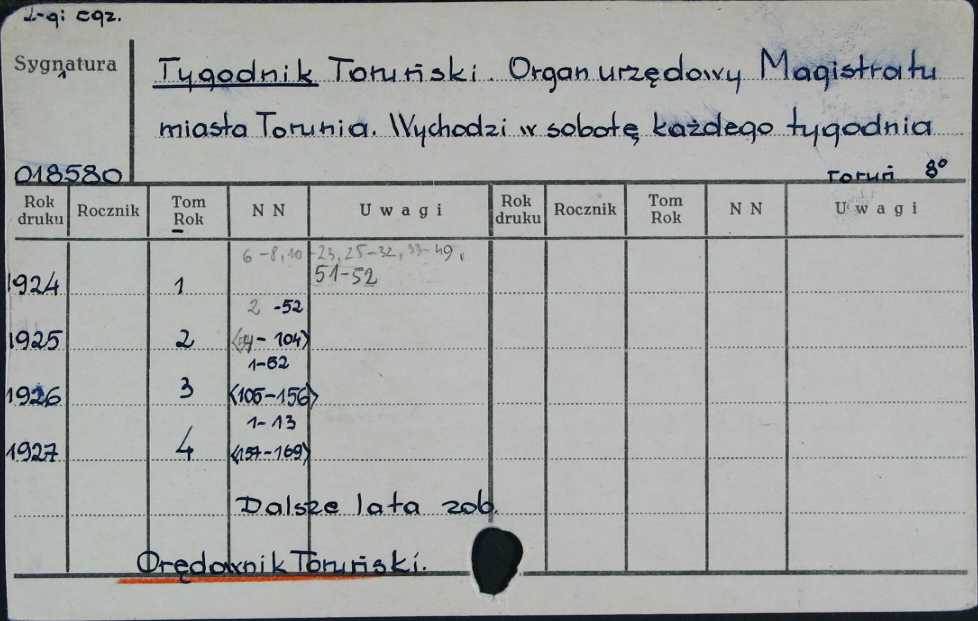 2-gi egz.
Sygnatura
Tygodnik Toruński. Organ urzędowy Magistratu
miasta Torunia. Wychodzi w sobotę każdego tygodnia
018580
Toruń 8°
Rok druku Rocznik Tom Rok N N Uwagi Rok druku Rocznik Tom Rok N N Uwagi
6-8, 10-23, 25-32, 33-49,
1924 1 51-52
2 -52
1925 2 - 104>
1-52
1926 3 <105-156>
1-13
1927 4 <157-169>
Dalsze lata zob.
Orędownik Toruński.